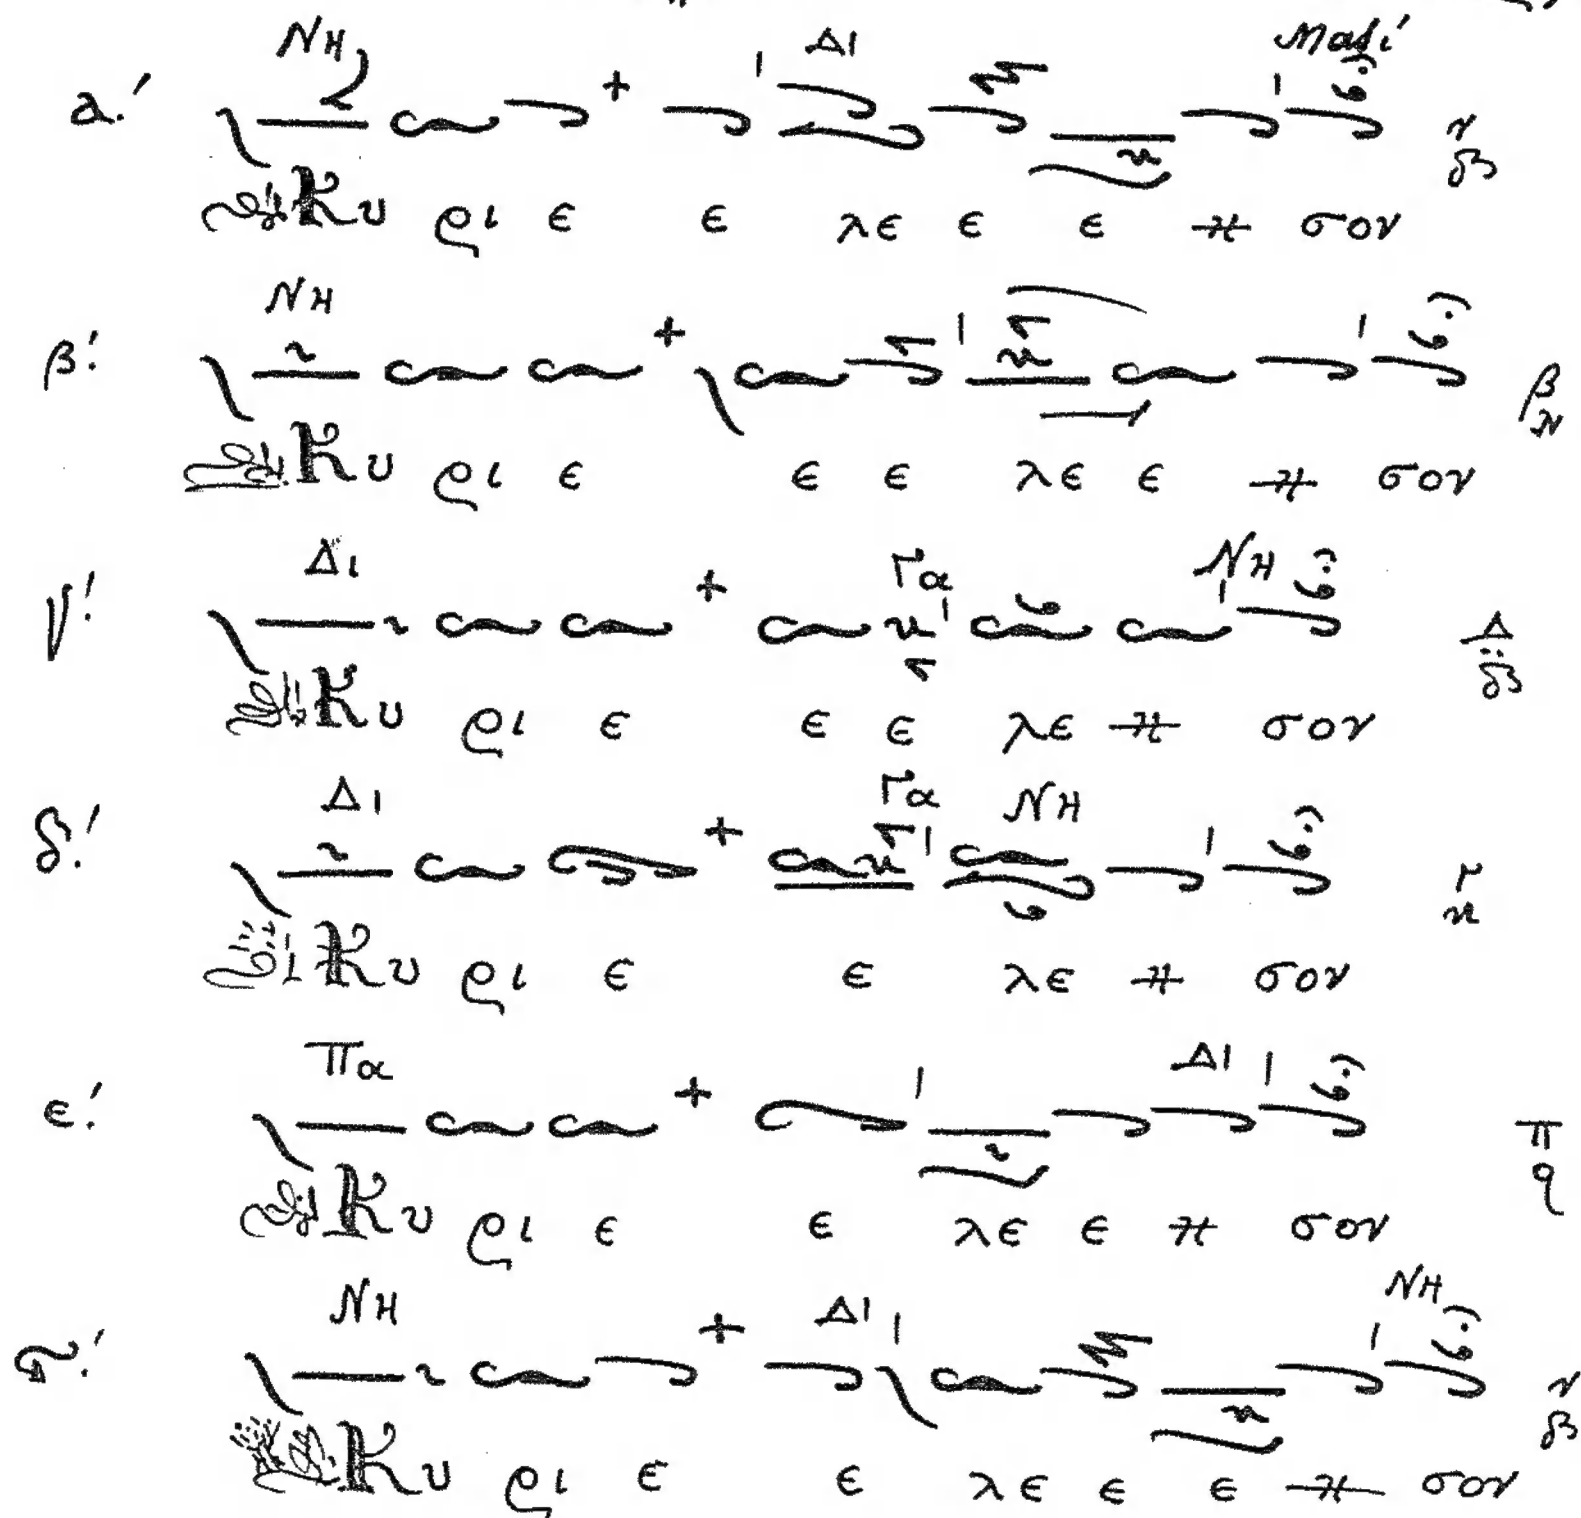 ΝΗ Δι Μαζί
α!
Κυ ρι ε ε λε ε ε η σον
ΝΗ
β!
Κυ ρι ε ε ε λε ε η σον
Δι Γα ΝΗ
γ!
Κυ ρι ε ε ε λε η σον
Δι Γα ΝΗ
δ!
Κυ ρι ε ε λε η σον
Πα Δι
ε!
Κυ ρι ε ε λε ε η σον
ΝΗ Δι ΝΗ
ϛ!
Κυ ρι ε ε λε ε ε η σον